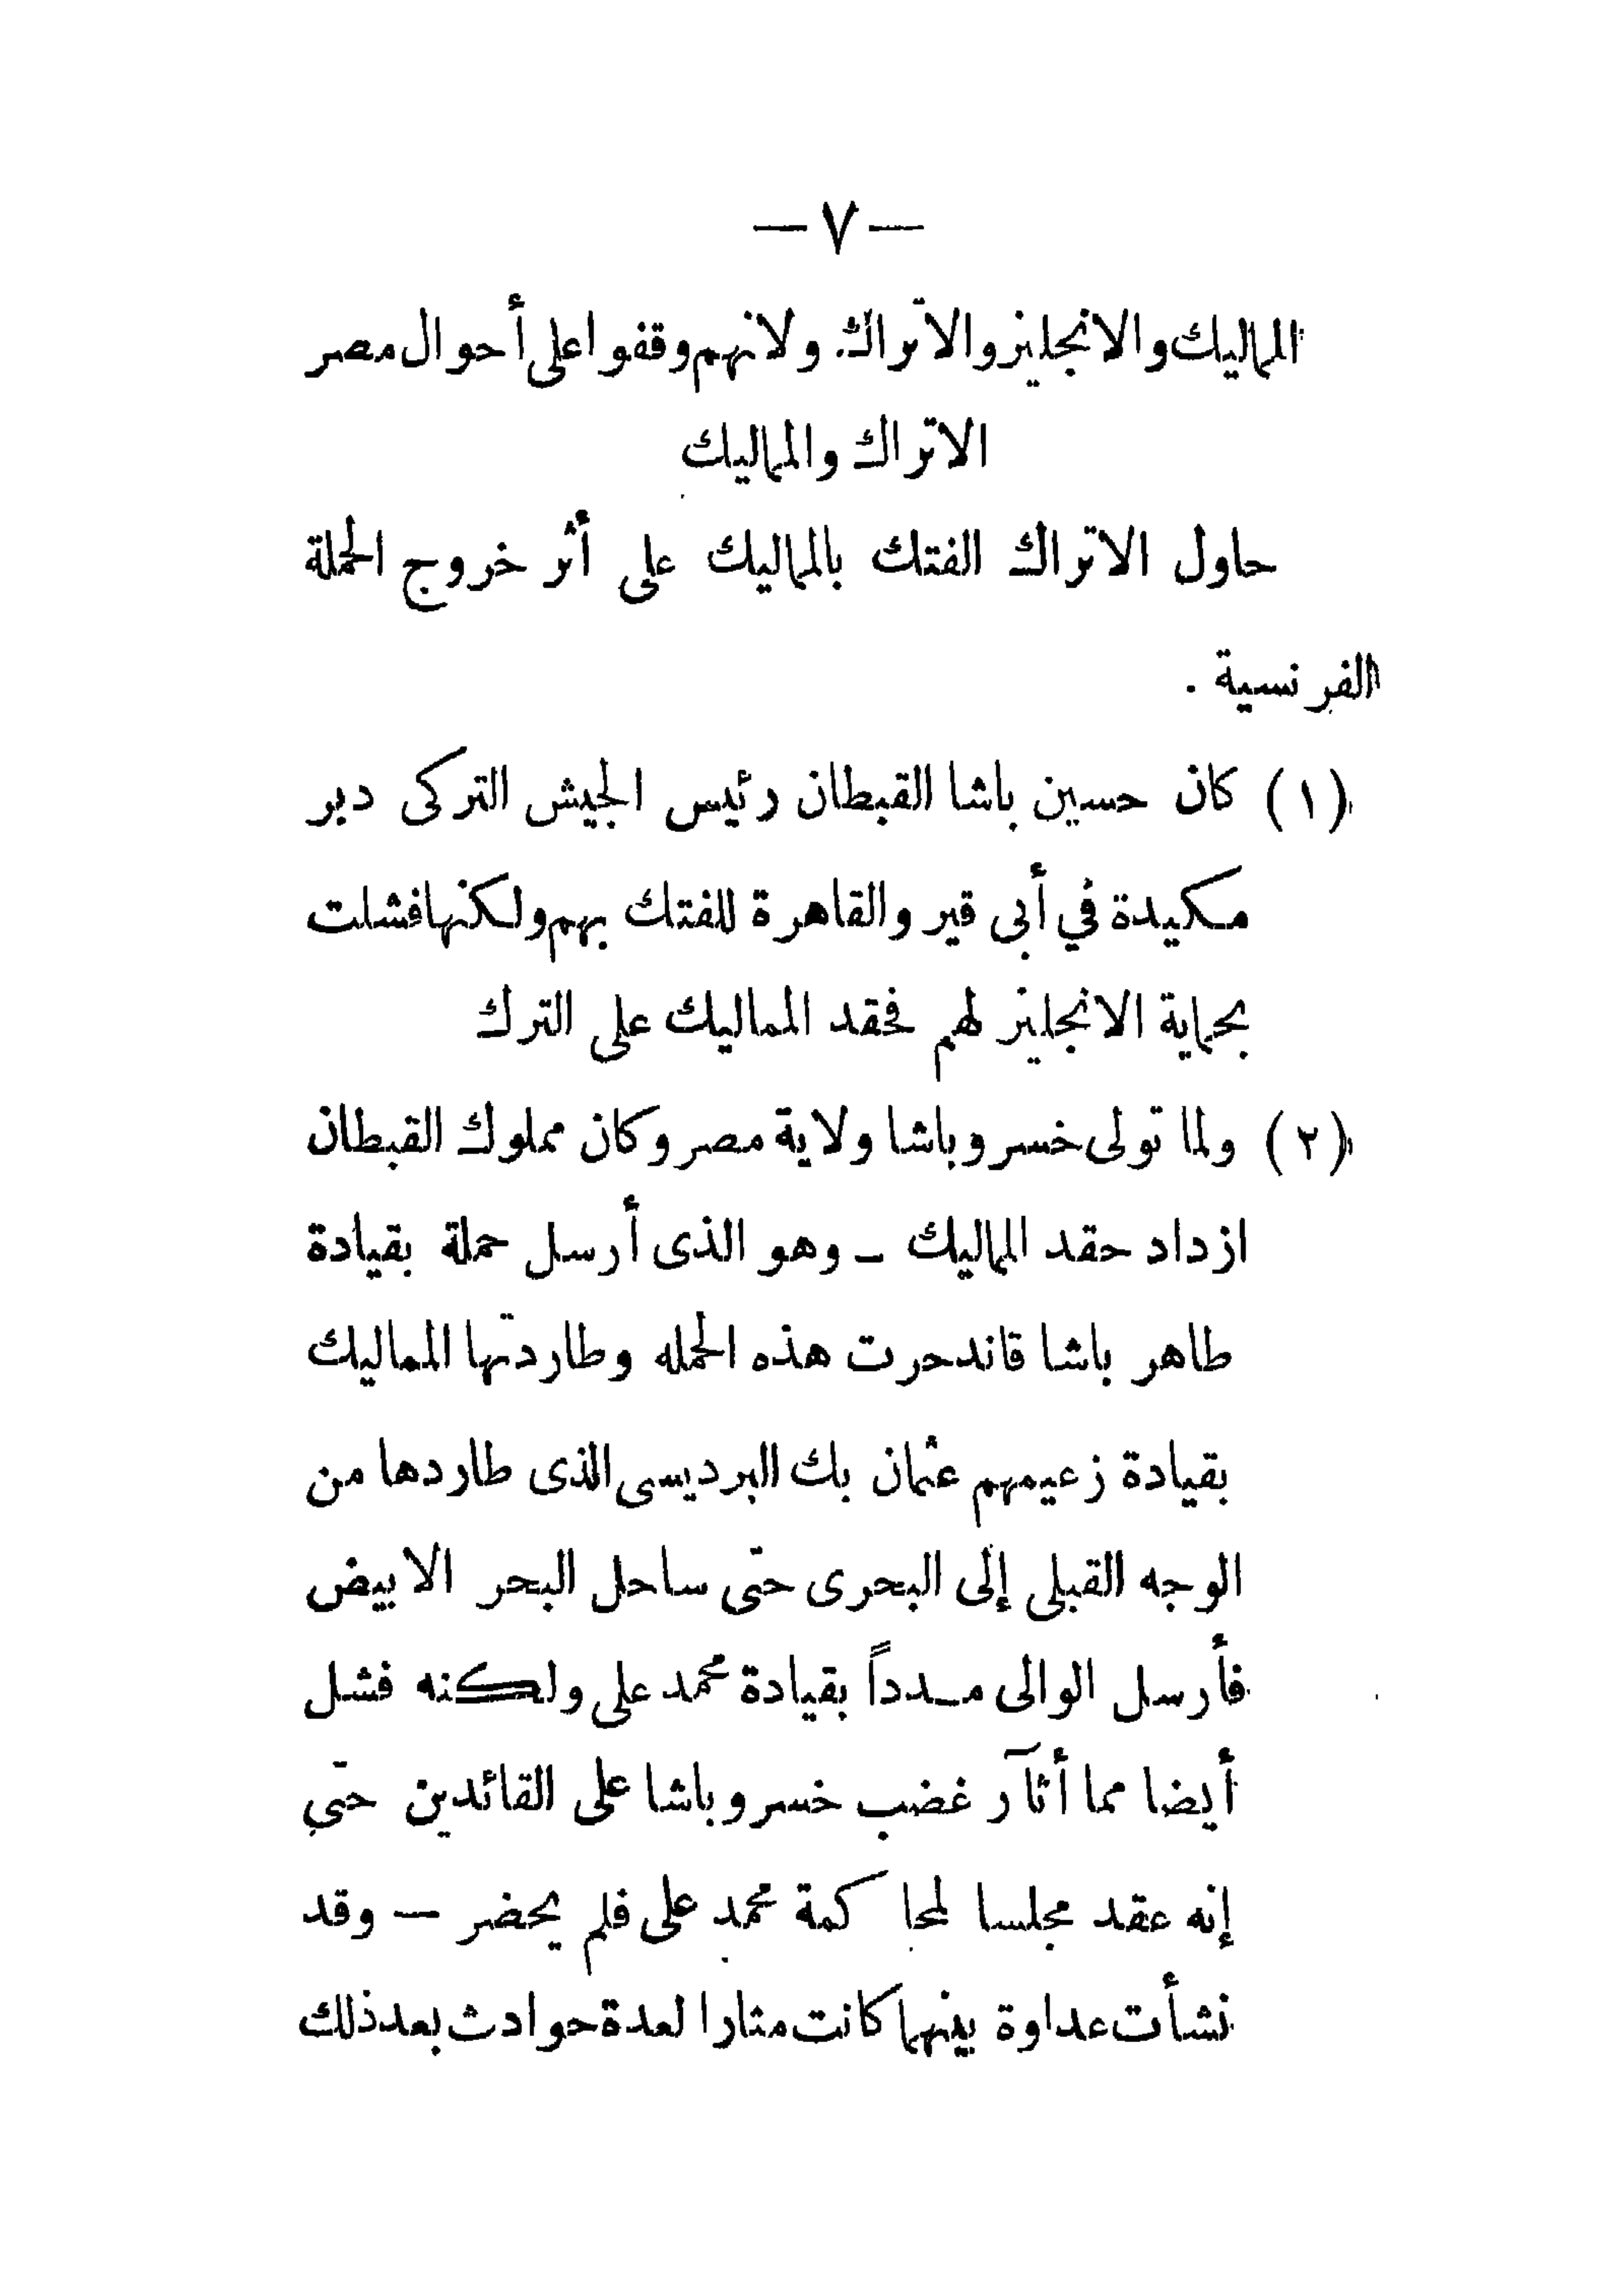 — ٧ —
المماليك والانجليز والاتراك. ولانهم وقفوا على أحوال مصر
الاتراك والمماليك
حاول الاتراك الفتك بالمماليك على أثر خروج الحملة
الفرنسية .
(١) كان حسين باشا القبطان رئيس الجيش التركى دبر
مكيدة في أبى قير والقاهرة للفتك بهم ولكنها فشلت
بحماية الانجليز لهم فحقد المماليك على الترك
(٢) ولما تولى خسرو باشا ولاية مصر وكان مملوك القبطان
ازداد حقد المماليك – وهو الذى أرسل حملة بقيادة
طاهر باشا قاندحرت هذه الحمله وطاردتها المماليك
بقيادة زعيمهم عثمان بك البرديسى الذى طاردها من
الوجه القبلى إلى البحرى حتى ساحل البحر الابيض
فأرسل الوالى مدداً بقيادة محمد على ولكنه فشل
أيضا مما أثآر غضب خسرو باشا على القائدين حتى
إنه عقد مجلسا لمحاكمة محمد على فلم يحضر — وقد
نشأت عداوة بينهما كانت مثارا لعدة حوادث بعد ذلك